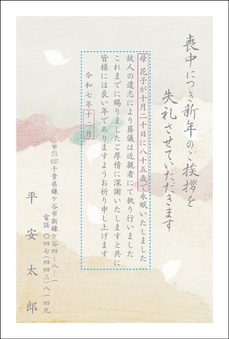 喪中につき新年のご挨拶を
失礼させていただきます
母 花子が十月二十日に八十五歳で永眠いたしました
故人の遺志により葬儀は近親者にて執り行いました
これまでに賜りましたご厚情に深謝いたしますと共に
皆様には良い年でありますようお祈り申し上げます
令和七年十一月
千葉県鎌ケ谷市新鎌ケ谷四‐八‐一一
電話 〇四七(四四三)八一四九
平安太郎